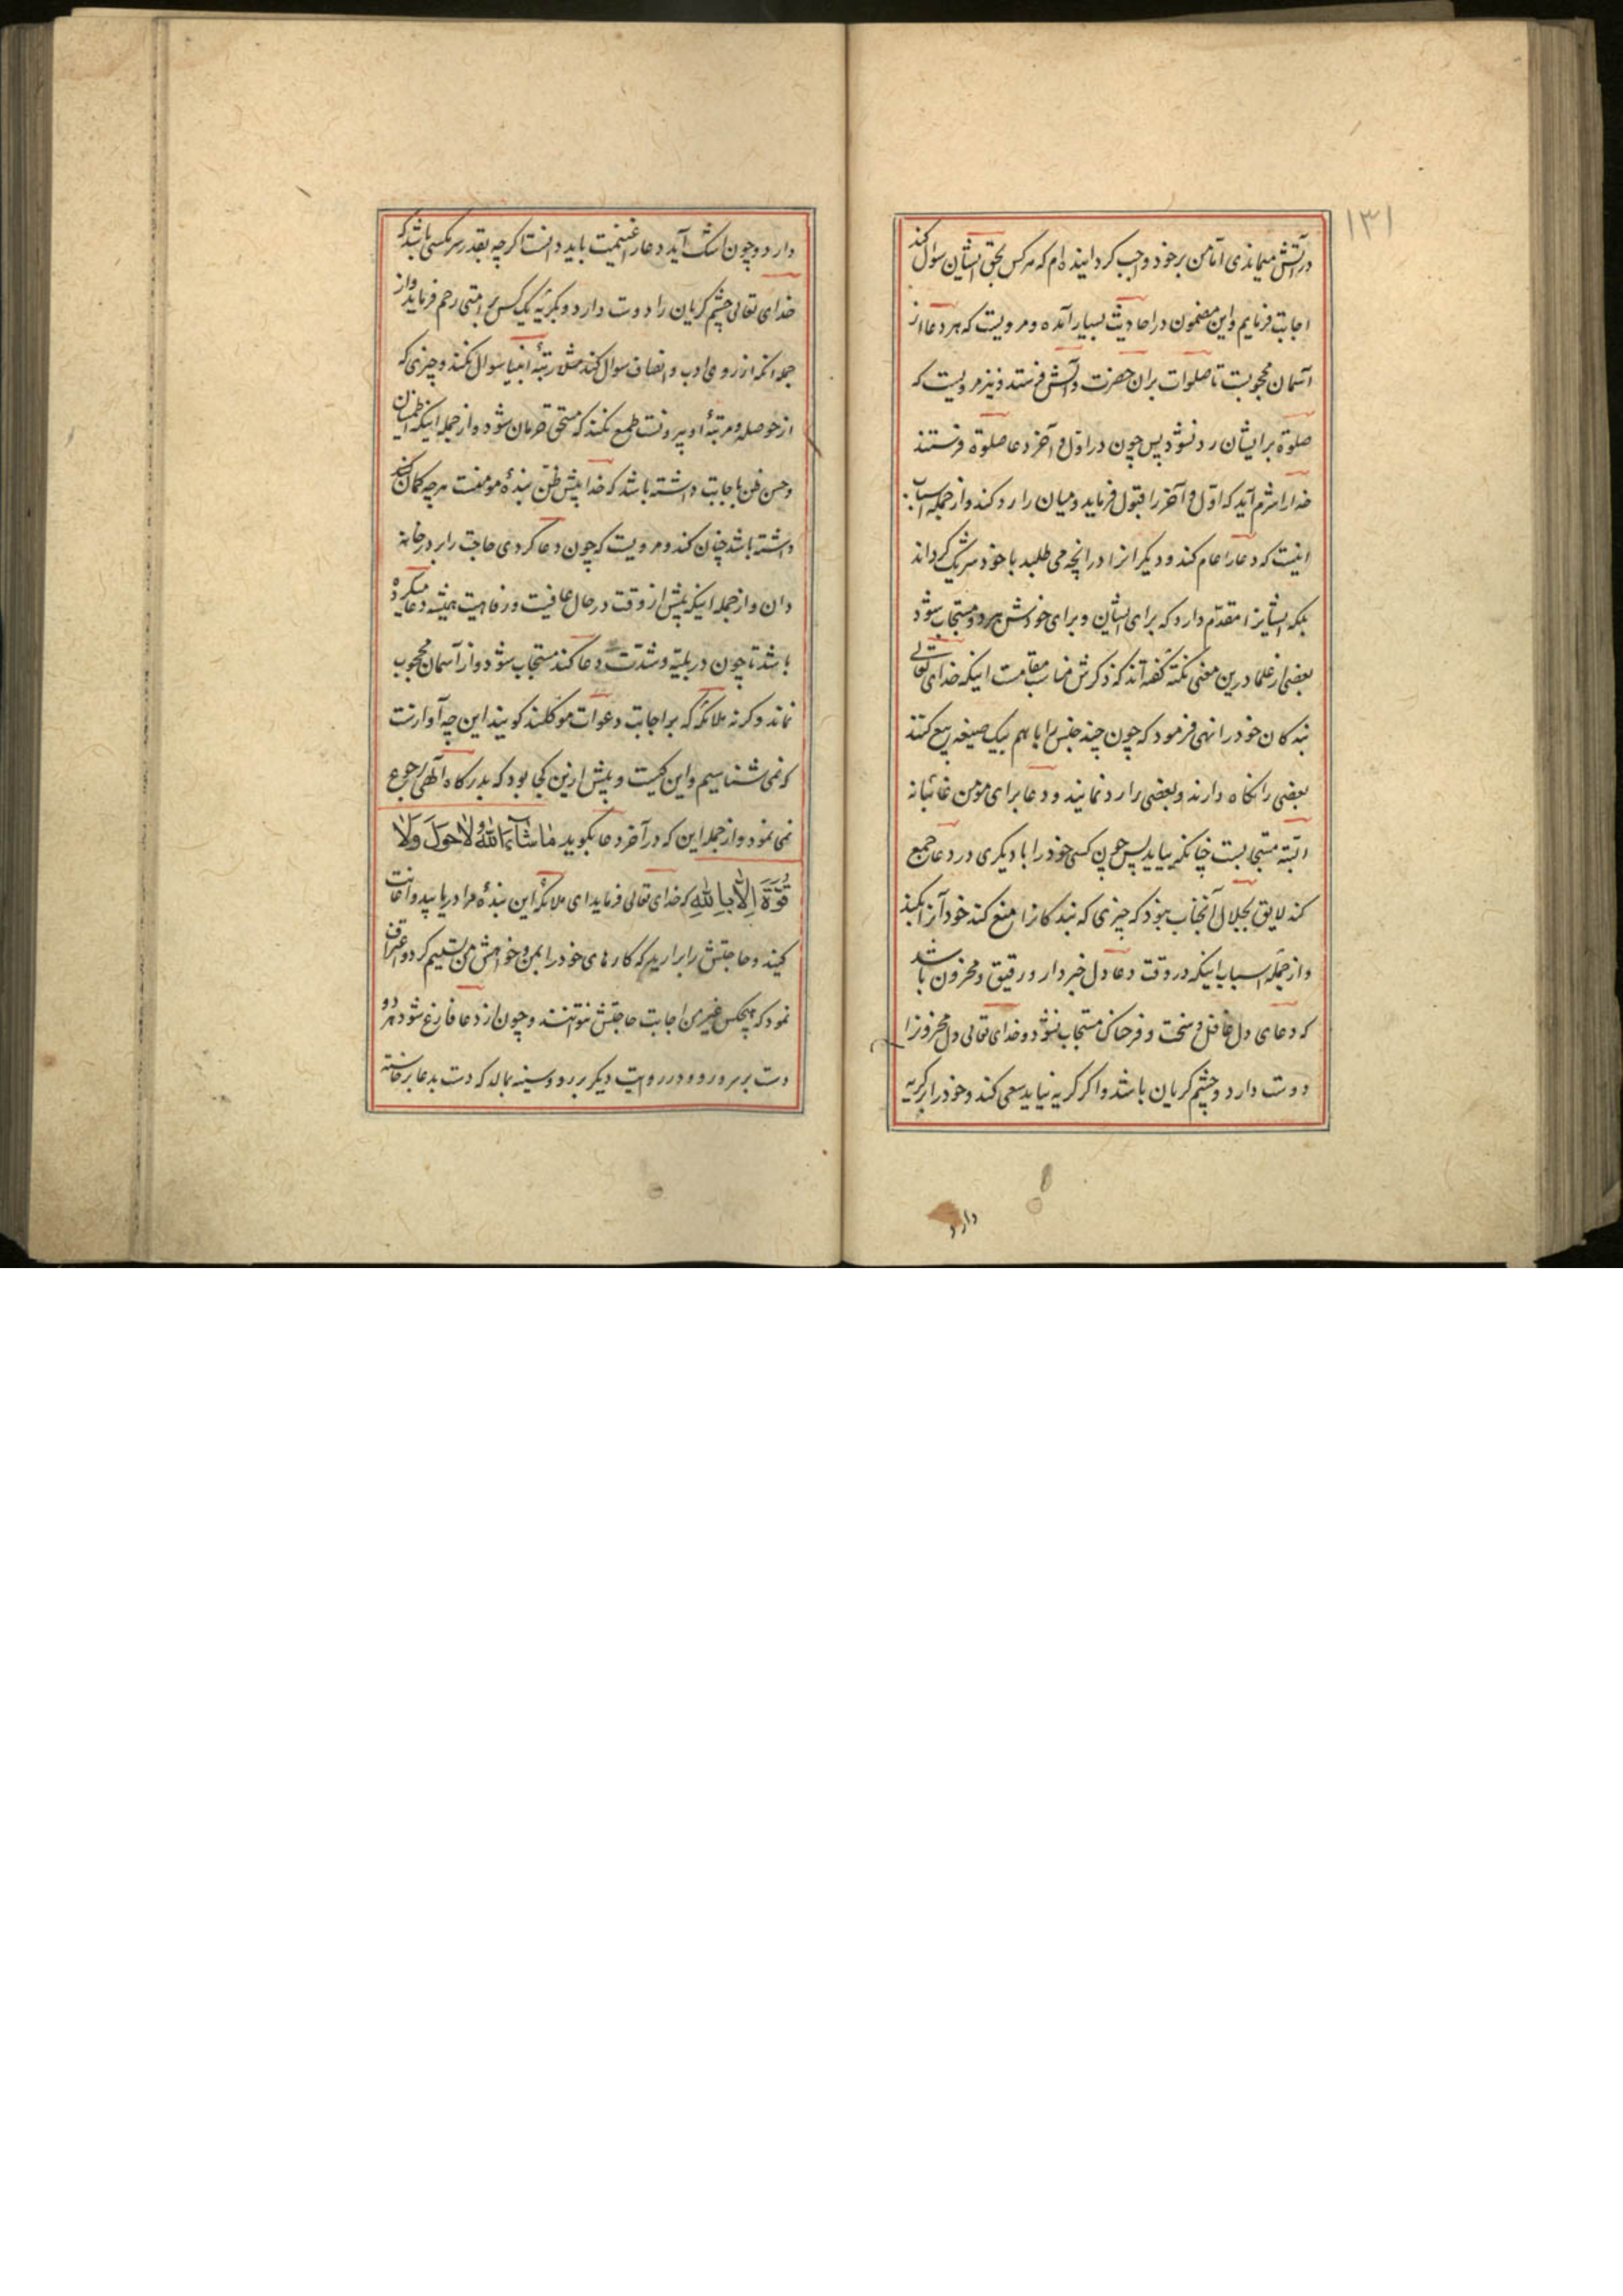 ۱۳۱
در آتش میماندی اما من بر خود واجب گردانیده‌ام که هر کس بحق ایشان سوال کند
اجابت فرمایم و این مضمون در احادیث بسیار آمده و مرویست که هر دعا از
آسمان محجوبست تا صلوات بران حضرت و آلش فرستد و نیز مرویست که
صلوة بر ایشان رد نشود پس چون در اول و آخر دعا صلوة فرستند
خدا را شرم آید که اول و آخر را قبول فرماید و میان را رد کند و از جمله اسباب
اینست که دعا را عام کند و دیگرانرا در انچه می طلبد با خود شریک گرداند
بلکه ایشانرا مقدم دارد که برای ایشان و برای خودش هر دو مستجاب شود
بعضی از علما درین معنی نکته گفته‌اند که ذکرش مناسب مقامست اینکه خدای تعالی
بندکان خود را نهی فرمود که چون چند جنس را با هم بیک صیغه بیع کنند
بعضی را نکاه دارند و بعضی را رد نمایند و دعا برای مؤمن غائبانه
البته مستجابست چنانکه بیاید پس چون کسی خود را با دیکری در دعا جمع
کند لایق بجلال آنجناب نبود که چیزی که بندکانرا منع کند خود آنرا بکند
و از جمله اسباب اینکه در وقت دعا دل خبردار و رقیق و محزون باشد
که دعای دل غافل و سخت و فرحناک مستجاب نشود و خدای تعالی دل محزونرا
دوست دارد و چشم کریان باشد و اکر کریه نیاید سعی کند و خود را بر کریه
دارد
دارد و چون اشک آید دعا را غنیمت باید دانست اکرچه بقدر سر مکسی باشد که
خدای تعالی چشم کریان را دوست دارد و بکریهٔ یک کس بر امتی رحم فرماید و از
جمله انکه از روی ادب و انصاف سوال کند مثل رتبهٔ انبیا سوال نکند و چیزی که
از حوصله و مرتبهٔ او بیرونست طمع نکند که مستحق حرمان شود و از جمله اینکه اطمینان
و حسن ظن باجابت داشته باشد که خدا پیش ظن بندهٔ مومنست هر چه کمان کند
داشته باشد چنان کند و مرویست که چون دعا کردی حاجت را بر در خانه
دان و از جمله اینکه پیش از وقت در حال عافیت و رفاهیت همیشه دعا میکرده
باشد تا چون در بلیه و شدت دعا کند مستجاب شود و از آسمان محجوب
نماند و کرنه ملائکه که بر اجابت دعوات موکلند کویند این چه آوازست
که نمی شناسیم و این کیست و پیش ازین کجا بود که بدرکاه الهی رجوع
نمی نمود و از جمله این که در آخر دعا بکوید مَا شَآءَ اللهُ لَا حَوْلَ وَلَا
قُوَّةَ اِلَّا بِاللهِ که خدای تعالی فرماید ای ملائکه این بندهٔ مرا دریابید و اعانت
کنید و حاجتش را برارید که کارهای خود را بمن و خواهش من تسلیم کرد و اعتراف
نمود که هیچکس غیر من اجابت حاجتش نتوانند و چون از دعا فارغ شود هر دو
دست بر سر و رو و در روایت دیکر بر رو و سینه بمالد که دست بدعا برخاسته